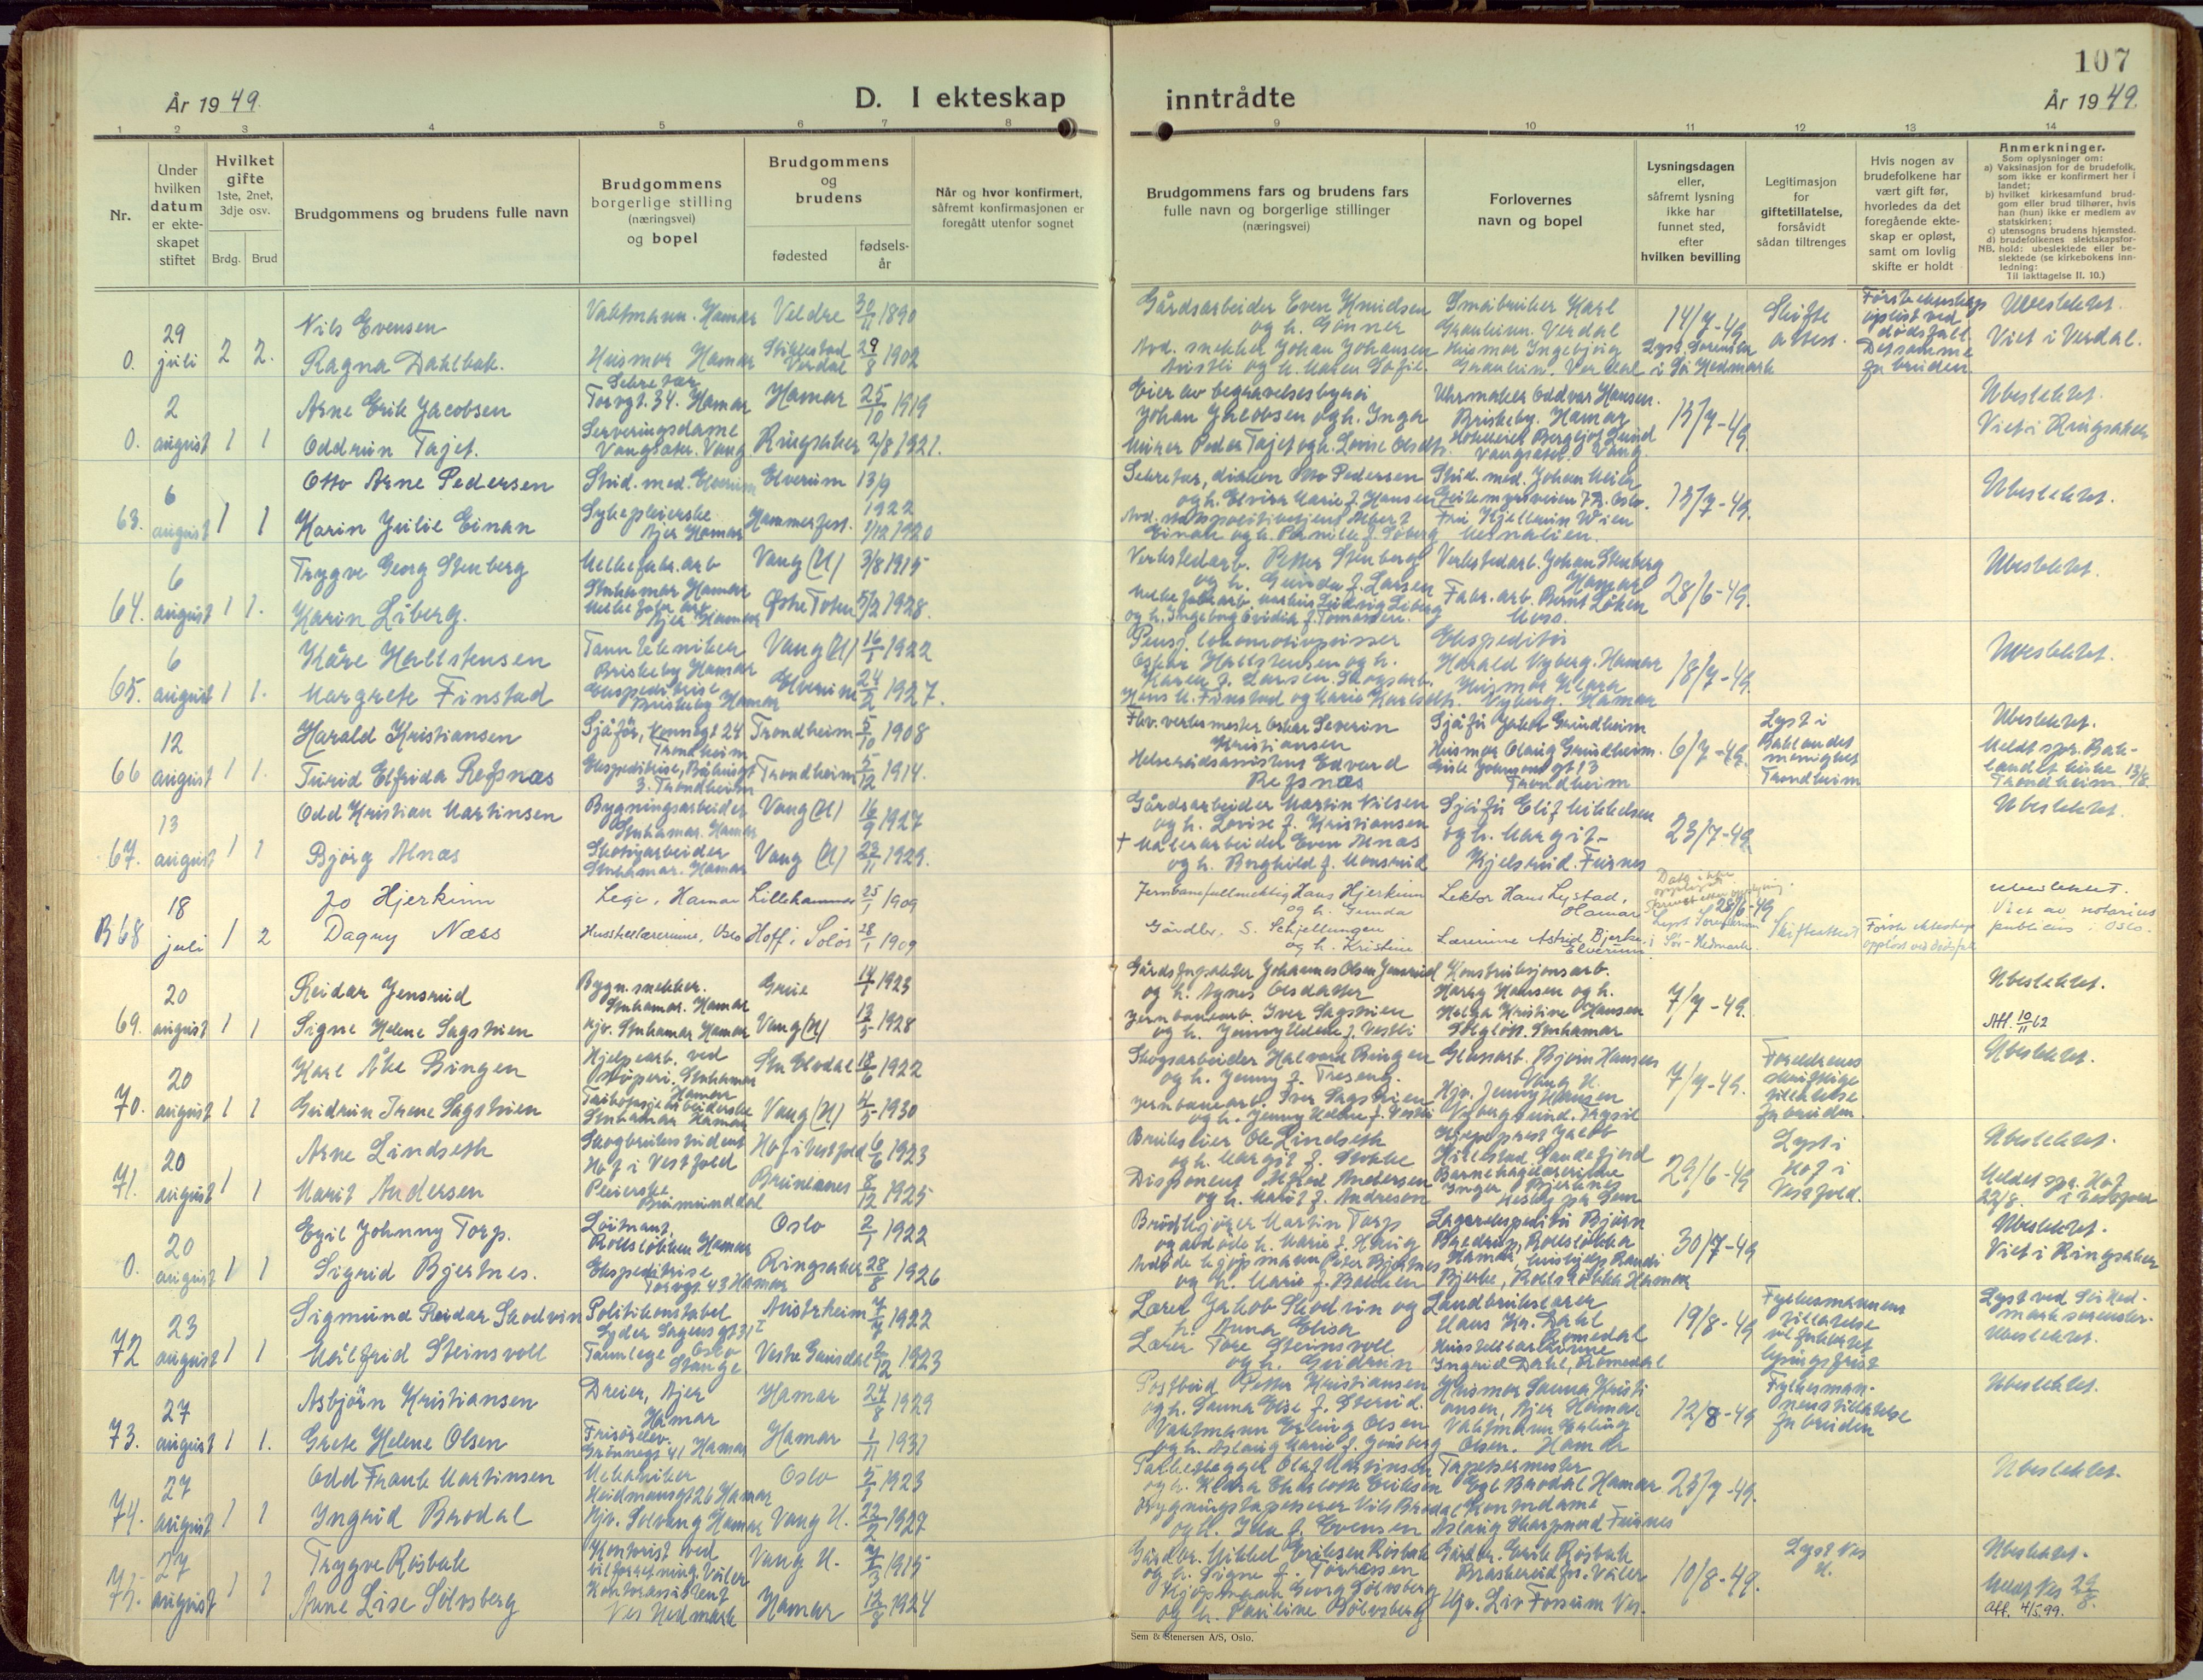 107
År 1949.
D. I ekteskap inntrådte
År 1949.
1 2 3 4 5 6 7 8 9 10 11 12 13 14
Nr.
Under hvilken datum er ekteskapet stiftet
Hvilket gifte 1ste, 2net, 3dje osv.
Brdg. Brud
Brudgommens og brudens fulle navn
Brudgommens borgerlige stilling (næringsvei) og bopel
Brudgommens og brudens
fødested
fødselsår
Når og hvor konfirmert, såfremt konfirmasjonen er foregått utenfor sognet
Brudgommens fars og brudens fars fulle navn og borgerlige stillinger (næringsvei)
Forlovernes navn og bopel
Lysningsdagen eller, såfremt lysning ikke har funnet sted, efter hvilken bevilling
Legitimasjon for giftetillatelse, forsåvidt sådan tiltrenges
Hvis nogen av brudefolkene har vært gift før, hvorledes da det foregående ekteskap er opløst, samt om lovlig skifte er holdt
Anmerkninger.
Som oplysninger om:
a) Vaksinasjon for de brudefolk, som ikke er konfirmert her i landet;
b) hvilket kirkesamfund brudgom eller brud tilhører, hvis han (hun) ikke er medlem av statskirken;
c) utensogns brudens hjemsted.
d) brudefolkenes slektskapsforhold: ubeslektede eller beslektede (se kirkebokens innledning:
NB.
Til iakttagelse II. 10.)
0. 29 juli 2 2.
Nils Evensen
Vaktmann. Hamar Veldre 30/11 1890
Ragna Dahlbak.
Husmor Hamar Stiklestad Verdal 29/8 1902
Gårdsarbeider Even Knudsen og h. Gunner
Småbruker Karl Granheim. Verdal
Husmor Ingebjørg Granheim. Verdal
14/7-49 Lyst Sorenskr. i Sø Hedmark
Skifte attest.
Første ekteskap opløst ved dødsfall. Det samme for bruden.
Ubeslektet.
Viet i Verdal.
0. 2 august 1 1
Arne Erik Jacobsen
Sekretær Torvgt. 34. Hamar Hamar 25/10 1919
Oddrun Tajet.
Serveringsdame Vangsåsen. Vang Ringsaker 2/8 1921.
Eier av begravelsesbyrå Johan Jacobsen og h. Inga
Murer Peder Tajet og h. Lovise Olsdt.
Uhrmaker Oddvar Hansen. Briskeby. Hamar
13/7-49
Ubeslektet.
Viet i Ringsaker
63. 6 august 1 1
Otto Arne Pedersen
Stud. med. Elverum Elverum 13/9 1922
Karin Julie Einan
Sykepleierske Ajer Hamar Hammerfest. 1/12 1920
Sekretær, diakon Otto Pedersen og h. Elvira Marie f. Hansen
Stud. med. Johan Meier Geitemyrsveien 7 B. Oslo.
13/7-49.
Ubeslektet.
64. 6 august 1 1.
Trygve Georg Stenberg
Melkefabr. arb Stuhamar Hamar Vang (H) 3/8 1915
Karin Liberg.
Ajer Hamar Østre Toten 5/2 1928.
Verkstedarb. Petter Stenberg og h. Gunda f. Larsen
Verkstedarb. Johan Stenberg Hamar
Fabr. arb. Bernt Løken Moss.
28/6-49.
Ubeslektet.
65. 6 august 1 1.
Kåre Hallstensen
Tanntekniker Briskeby Hamar Vang (H) 16/1 1922
Margrete Finstad
Ekspeditrise Briskeby Hamar Elverum 24/2 1927.
Pensj. lokomotivpusser Oskar Hallstensen og h. Karen f. Larsen.
Ekspeditør Harald Nyberg. Hamar
Husmor Klara Nyberg. Hamar
18/7-49.
Ubeslektet.
66 12 august 1 1.
Harald Kristiansen
Sjåfør, Trondheim Trondheim 5/10 1908
Turid Elfrida Refsnæs
Ekspeditrise, Trondheim Trondheim 5/12 1914.
Fhv. verksmester Oskar Severin Kristiansen
Helserådsassistent Edvard Refsnæs
Husmor Olaug Grundheim. Trondheim
6/7-49.
Lyst i Baklandet menighet Trondheim
Ubeslektet.
Meldt spr. Baklandet kirke 13/8. Trondheim.
67. 13 august 1 1
Odd Kristian Martinsen
Bygningsarbeider Stuhamar. Hamar Vang (H) 16/9 1927
Bjørg Alnæs
Skotøyarbeider Stuhamar. Hamar Vang (H) 23/11 1929.
Gårdsarbeider Martin Nilsen og h. Lovise f. Kristiansen
+ Malerarbeider Even Alnæs og h. Borghild f. Monsrud
Sjåfør Elif Mikkelsen og h. Margit
Kjelsrud. Furnes
23/7-49.
Ubeslektet.
B 68 18 juli 1 2
Jo Hjerkinn
Lege, Hamar Lillehammer 25/1 1909
Dagny Næss
Husstellærerinne, Oslo Hoff i Solør 28/1 1909
Jernbanefullmektig Hans Hjerkinn og h. Gunda
Gårdbr. S. Schjellungen og h. Kristine
Lektor Hans Lystad, Hamar
Lærerinne Astrid Bjerke, Elverum
28/6-49 Lyst Sorenskriveren i Sør-Hedmark.
Skifteattest
Første ekteskap oppløst ved dødsfall
Ubeslektet.
Viet av notarius publicus i Oslo.
69. 20 august 1 1
Reidar Jensrud
Bygn. snekker. Stuhamar. Hamar Grue 14/7 1923
Signe Helene Sagstuen
Hjv. Stuhamar Hamar Vang (H) 13/5 1928
Gårdsforpakter Johannes Olsen Jensrud og h. Agnes Olsdatter
Jernbanearb. Iver Sagstuen og h. Jenny Helene f. Vestli
Konstruksjonsarb. Harry Hansen og h. Helga Kristine Hansen Solgløtt. Stuhamar
7/7-49.
Ubeslektet.
Att. 10/11 62
70. 20 august 1 1
Karl Åke Bingen
Hjelpearb. ved støperi. Stuhamar Hamar Stu Elvdal 18/6 1922
Gudrun Irene Sagstuen
Trikotasjearbeiderske Stuhamar Hamar Vang (H) 4/5 1930
Skogsarbeider Halvard Bingen og h. Jenny f. Treseng.
Jernbanearb. Iver Sagstuen og h. Jenny Helene f. Vestli
Glassarb. Bjørn Hansen Vang H.
Hjv. Jenny Hansen Nybergsund. Trysil
7/7-49.
Foreldrenes skriftlige tillatelse for bruden.
Ubeslektet.
71. 20 august 1 1
Arne Lindseth
Skogbruksstudent Hof i Vestfold Hof i Vestfold 6/6 1923
Marit Andersen
Pleierske Brumunddal 8/12 1925
Brukseier Ole Lindseth og h. Margit f. Stokke
Disponent Alfred Andersen og h. Marit f. Andreson
Hjelpeprest Jacob Hillestad, Sandefjord
Barnehagelærerinne Inger Bjerknes
29/6-49
Lyst i Hof i Vestfold.
Ubeslektet.
Meldt spr. Hof 22/8.
0. 20 august 1 1
Egil Johnny Torp.
Løitnant, Rollsløkken Hamar Oslo 2/1 1922
Sigrid Bjertnes.
Ekspeditrise Torvgt. 43 Hamar Ringsaker 28/8 1926
Brødkjører Martin Torp og avdøde h. Marie f. Haug
Avdøde kjøpmann Peter Bjertnes og h. Marie f. Bakken
Lagerekspeditør Bjørn Hamar,
Bjerke, Rollsløkka Hamar
30/7-49
Ubeslektet.
Viet i Ringsaker
72 23 august 1 1
Sigmund Reidar Skodvin
Politikonstabel Lyder Sagens gt 31 Oslo Austrheim 4/7 1922
Målfrid Steinsvoll
Tannlege Stange Vestre Gausdal 2/12 1923
Lærer Jakob Skodvin og h. Anna Elisa
Lærer Tore Steinsvoll og h. Gudrun
Landbrukslærer Hans Kr. Dahl Romedal
Husstellærerinne Ingrid Dahl, Romedal
19/8-49
Fylkesmannens tillatelse til forkortet lysningsfrist
Lyst ved Sø Hedmark sorenskr.
Ubeslektet.
73. 27 august 1 1.
Asbjørn Kristiansen
Dreier, Ajer Hamar Hamar 27/8 1929
Grete Helene Olsen
Frisørelev. Grønnegt 41 Hamar Hamar 1/11 1931
Postbud Petter Kristiansen og h. Sauna Else f. Sterud.
Vaktmann Erling Olsen og h. Aslaug Marie f. Jønsberg
Husmor Sauna Kristiansen, Ajer Hamar
Vaktmann Erling Olsen. Hamar
12/8-49
Fylkesmannens tillatelse for bruden
Ubeslektet.
74. 27 august 1 1
Odd Frank Martinsen
Mekaniker Heidmansgt 26 Hamar Oslo 5/1 1923
Ingrid Brodal
Hjv. Solvang Hamar Vang H. 22/2 1927
Parkettlegger Olaf Martinsen og h. Klara Charlotte Eriksen
Bygningstapetserer Nils Brodal og h. Ida f. Evensen
Tapetsermester Egil Brodal Hamar
Kontordame Aslaug Skarpnord Furnes
23/7-49.
Ubeslektet.
75. 27 august 1 1
Trygve Rosbak
Kontorist ved bilforretning. Våler Vang H. 4/3 1915
Anne Lise Sølvsberg
Kontorassistent Nes Hedmark Hamar 12/8 1924
Gårdbr. Mikkel Eriksen Rosbak og h. Signe f. Torkessen
Kjøpmann Georg Sølvsberg og h. Pauline Sølvsberg
Gårdbr. Erik Rosbak Braskereidfoss. Våler
Hjv. Liv Fossum Nes.
10/8-49.
Lyst Nes H.
Ubeslektet.
Meldt Nes 29/8.
Att. 4/5.99.
Sem & Stenersen A/S, Oslo.